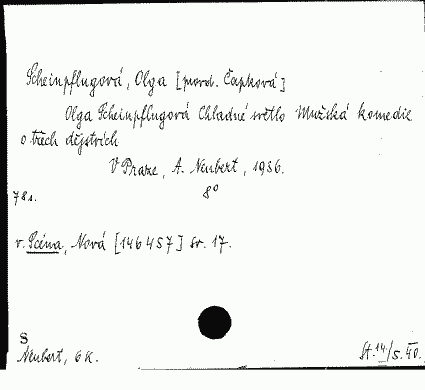 Scheinpflugová, Olga [provd. Čapková]
Olga Scheinpflugová Chladné světlo Mužská komedie
o třech dějstvích
V Praze, A. Neubert, 1936.
78 s. 8°
v. Scéna, Nová [146457] sv. 17.
S
Neubert, 6 K.
St. 14/5. 40.